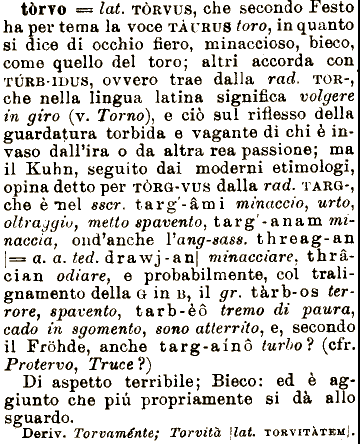 tòrvo = lat. TÒRVUS, che secondo Festo
ha per tema la voce TÀURUS toro, in quanto
si dice di occhio fiero, minaccioso, bieco,
come quello del toro; altri accorda con
TÚRB-IDUS, ovvero trae dalla rad. TOR-,
che nella lingua latina significa volgere
in giro (v. Torno), e ciò sul riflesso della
guardatura torbida e vagante di chi è in-
vaso dall'ira o da altra rea passione; ma
il Kuhn, seguito dai moderni etimologi,
opina detto per TÒRG-VUS dalla rad. TARG-,
che è nel sscr. targ'-âmi minaccio, urto,
oltraggio, metto spavento, targ'-anam mi-
naccia, ond'anche l'ang-sass. threag-an
[= a. a. ted. drawj-an] minacciare, thrâ-
cian odiare, e probabilmente, col trali-
gnamento della G in B, il gr. tàrb-os ter-
rore, spavento, tarb-èô tremo di paura,
cado in sgomento, sono atterrito, e, secondo
il Fröhde, anche targ-aínô turbo? (cfr.
Protervo, Truce?)
Di aspetto terribile; Bieco: ed è ag-
giunto che piú propriamente si dà allo
sguardo.
Deriv. Torvaménte; Torvità [lat. TORVITÀTEM].